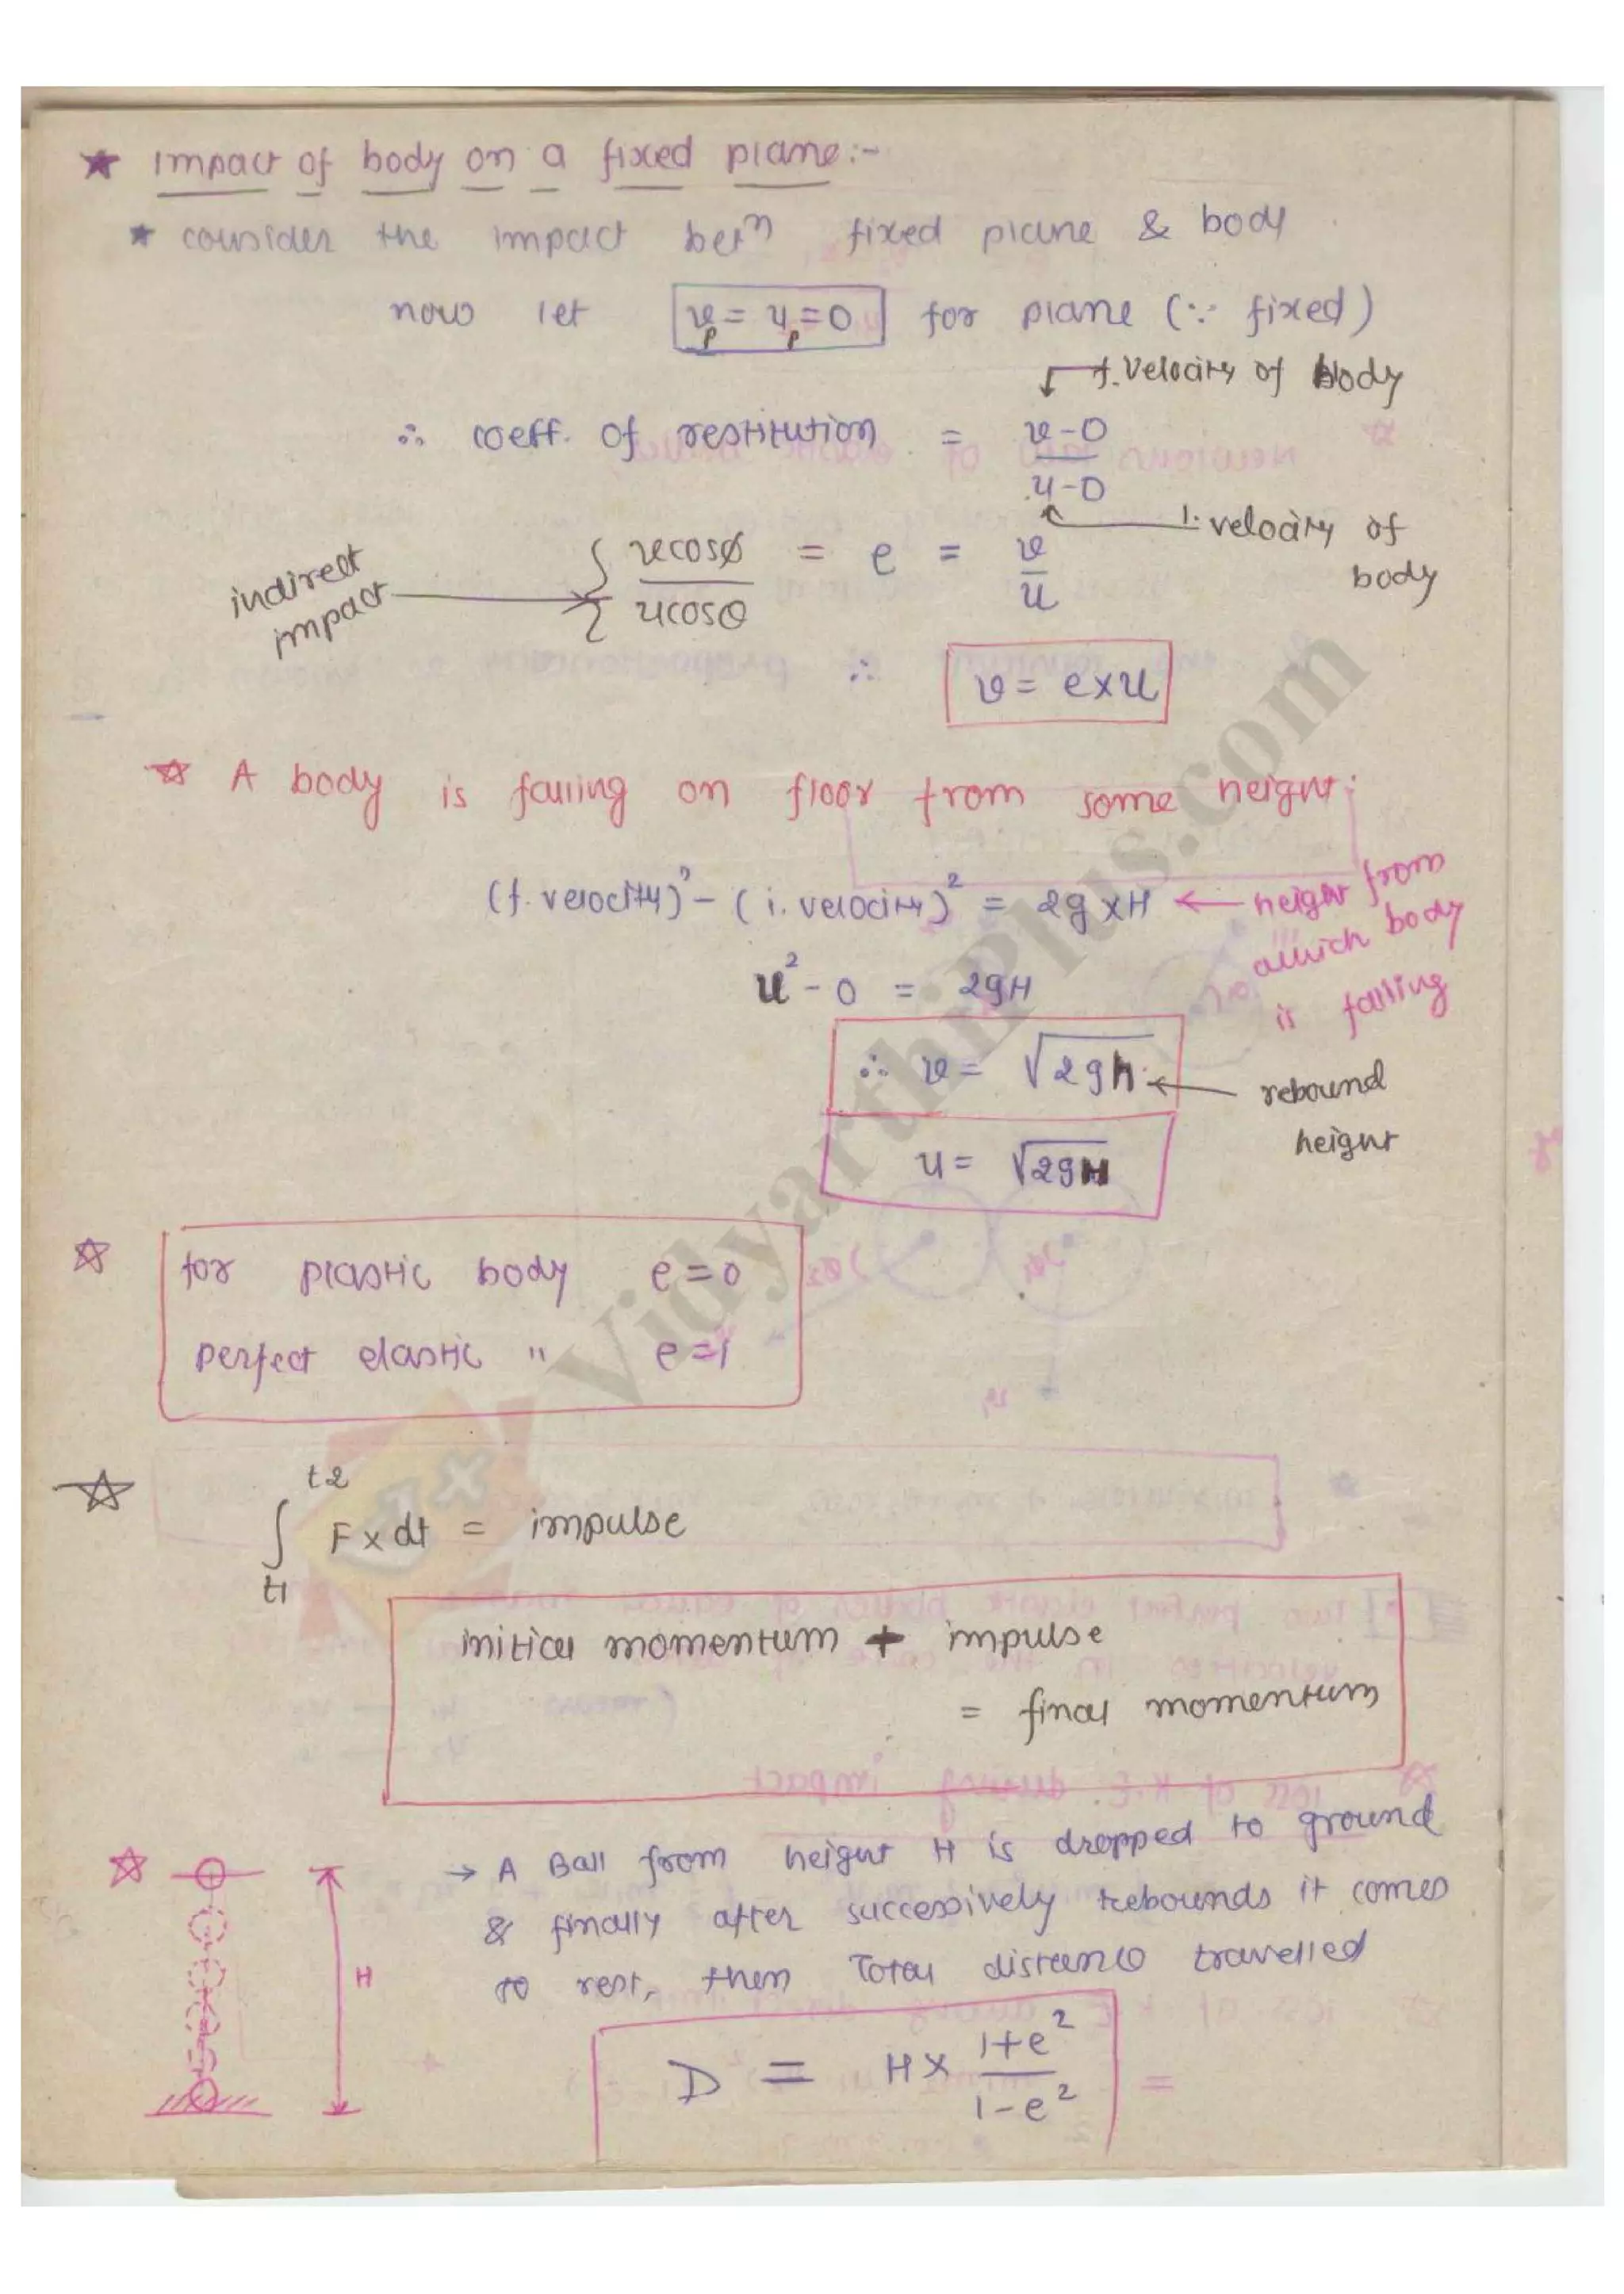 ★ Impact of body on a fixed plane:-
★ consider the impact betn fixed plane & body
now let vp = up = 0 for plane (∵ fixed)
f. velocity of body
∴ coeff. of restitution = v-0 / u-0
i. velocity of body
indirect impact
v cosø / u cosθ = e = v / u
∴ v = e×u
☆ A body is falling on floor from some height.
(f. velocity)² - (i. velocity)² = 2g×H ← height from which body is falling
u² - 0 = 2gH
∴ v = √2gh ← rebound height
u = √2gH
☆ for plastic body e=0
perfect elastic " e=1
☆ ∫ t1 t2 F×dt = impulse
initial momentum + impulse
= final momentum
☆ → A Ball from height H is dropped to ground
& finally after successively rebounds it comes
to rest, then Total distance travelled
H
D = H× 1+e² / 1-e² =
VidyarthiPlus.com
V+